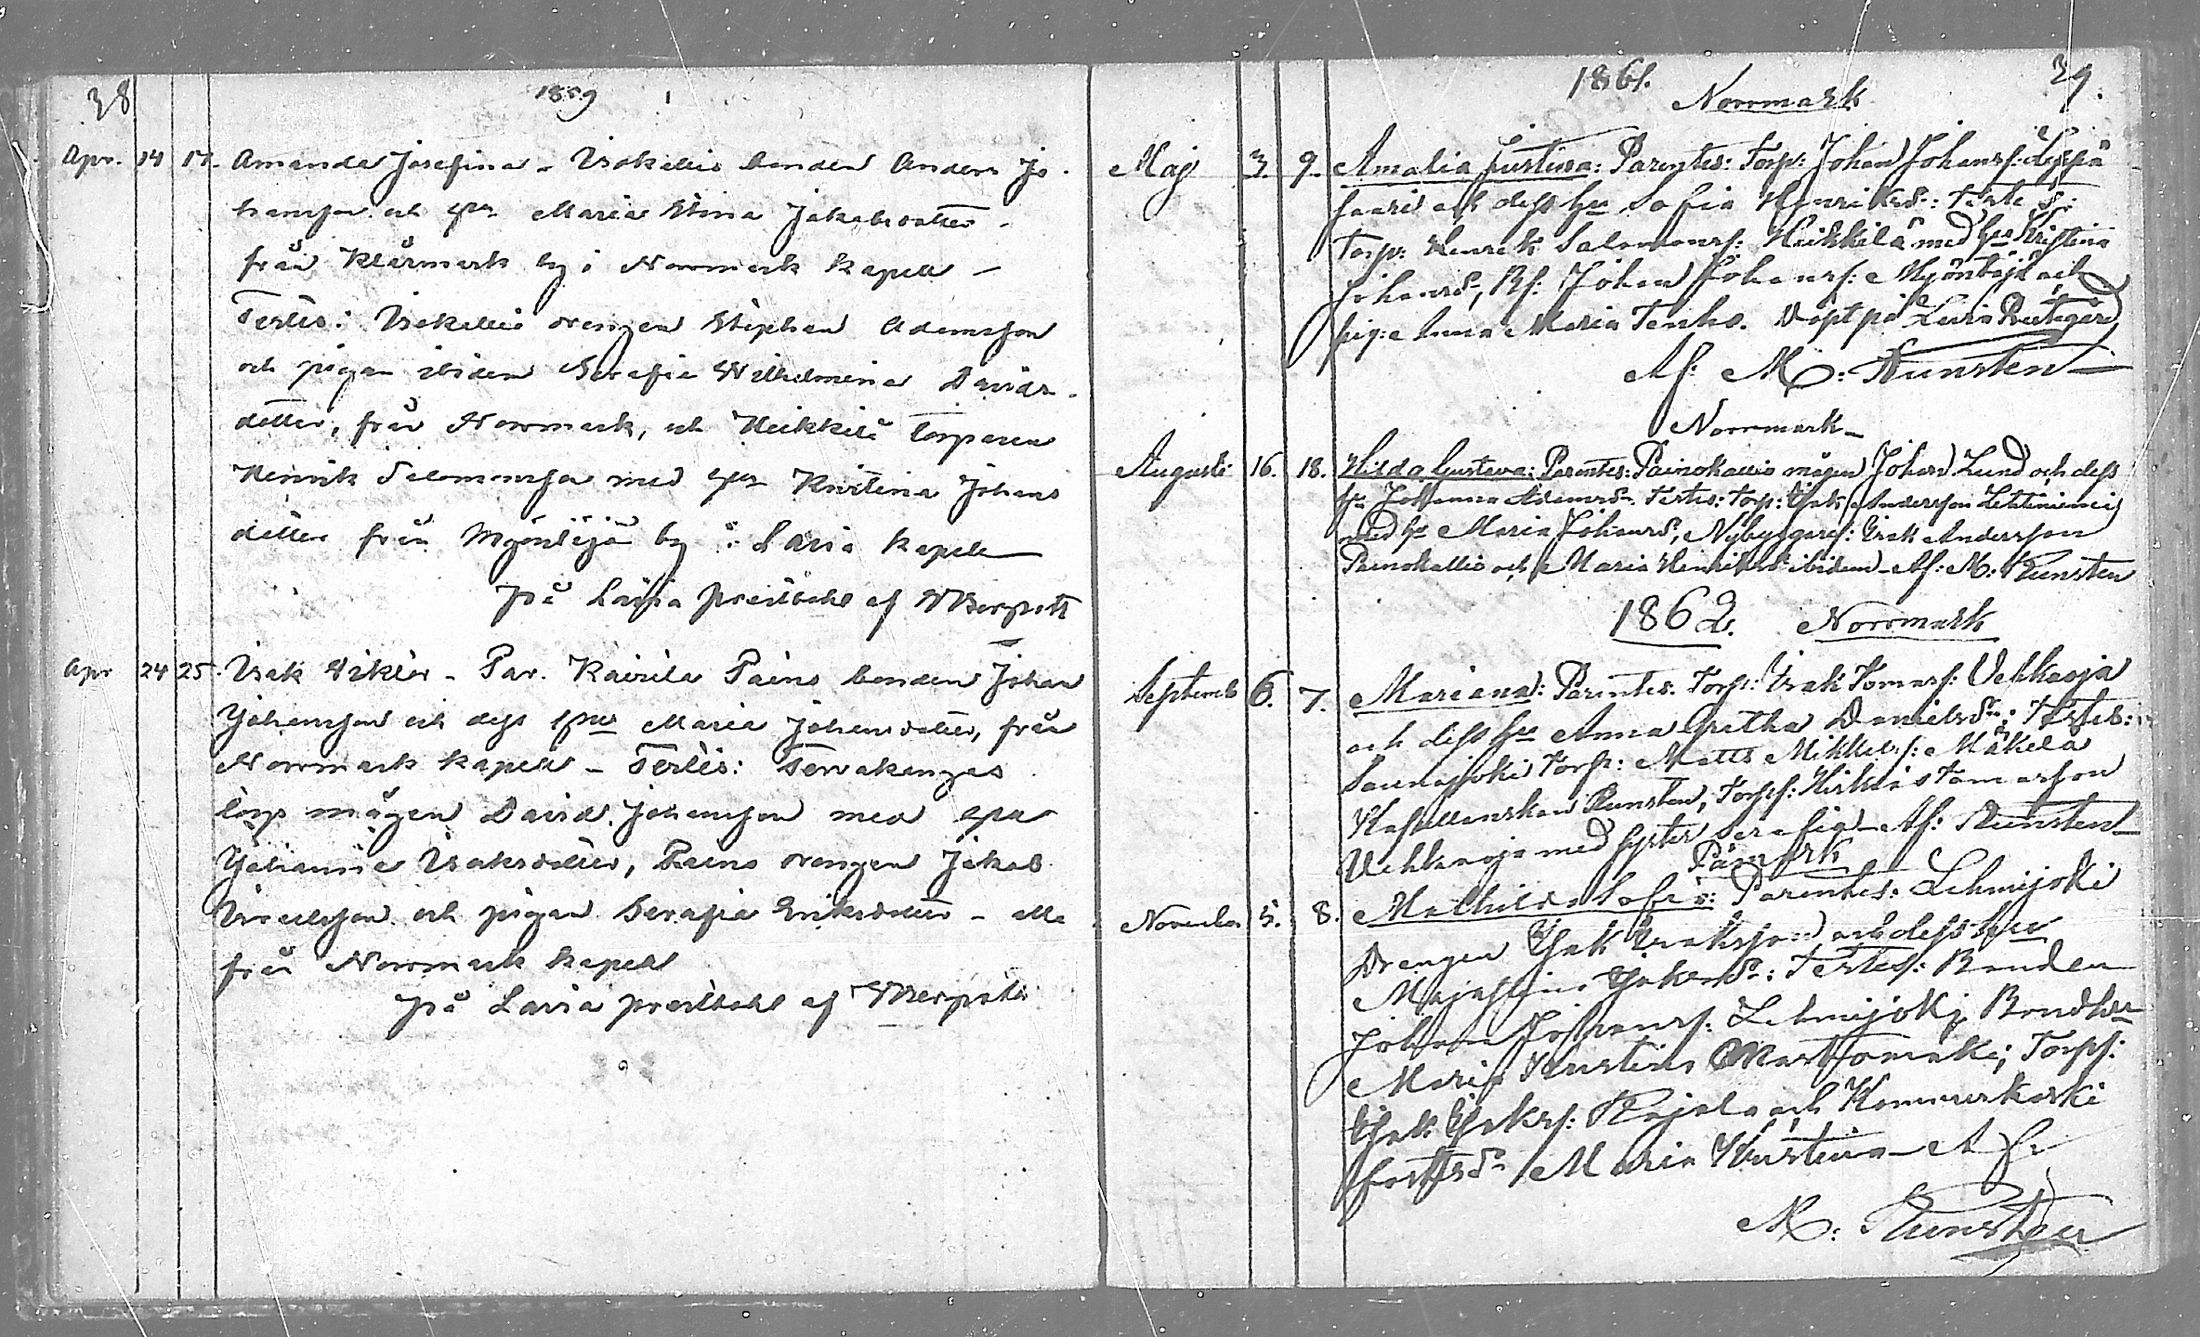 38
1859
Apr. 14 17. Amanda Josefina - Isokallio bonden Anders Jo-
hansson och hru Maria Stina Jakobsdotter -
från Klåsmark by i Norrmark kapell -
Testes: Isokallio drengen Stephan Adamsson
och pigan ibidem Serafia Wilhelmina Davids-
dotter, från Norrmark, och Heikkilä torparen
Henrik Salomonsson med hru Kristina Johans
dotter från Myöntäjä by i Lavia kapell
på Lavia prestbohl af
Apr 24 25. Isak Viktor - Par. Päins bonden Johan
Johansson och dess hru Maria Johansdotter, från
Norrmark kapell - Testes: Tervakangas
torp mågen David Johansson med hru
Johanna Isaksdotter, Pains drengen Jakob
och pigan Serafia Eriksdotter - alla
från Norrmark kapell
på Lavia prestbohl af
39.
1861.
Norrmark
Maj 3. 9. Amalia Justina: Parentes: Torp: Johan Johanss: Leppä
saari och dess hu Sofia Henriksd: Testes:
Torp: Henrik Salomonss: Heikkilä med hu Kristina
Johansd, Bs: Johan Johanss: Myöntäjä och
pig: Anna Maria Tenho. Döpt på Lavia Prestegård
Af: M: Nunsten
Norrmark
Augusti 16. 18. Hilda Gustava: Parentes: Painokallio mågen Johan Lund och dess
hu Johanna Adamsd. Testes: Torp: Isak Andersson Lehtiniemi
med hu Maria Johansd, Nybyggares: Isak Andersson
Painokallio och Maria Henriksd ibidem - Af: M: Nunsten
1862. Norrmark
September 6. 7. Mariana: Parentes. Torp: Isak Tomass: Vehkaoja
och dess hu Anna Gretha Danielsd: Testes:
Saunajoki Torp: Matts Mikkels: Mäkelä
Kapellanskan Nunsten, Torps: Heikki Tomasson
Vehkaoja med syster Serafia - Af: Nunsten
Påmark
November 5. 8. Mathilda Sofia: Parentes: Lehmijoki
Drengen Isak Isaksson och dess hu
Majastina Isaksd: Testes: Bonden
Johan Johanss: Lehmijoki Bondhu
Maria Kristina Torps:
Isak Isakss: Rajala och
Maria Kristina - Af:
M: Nunsten